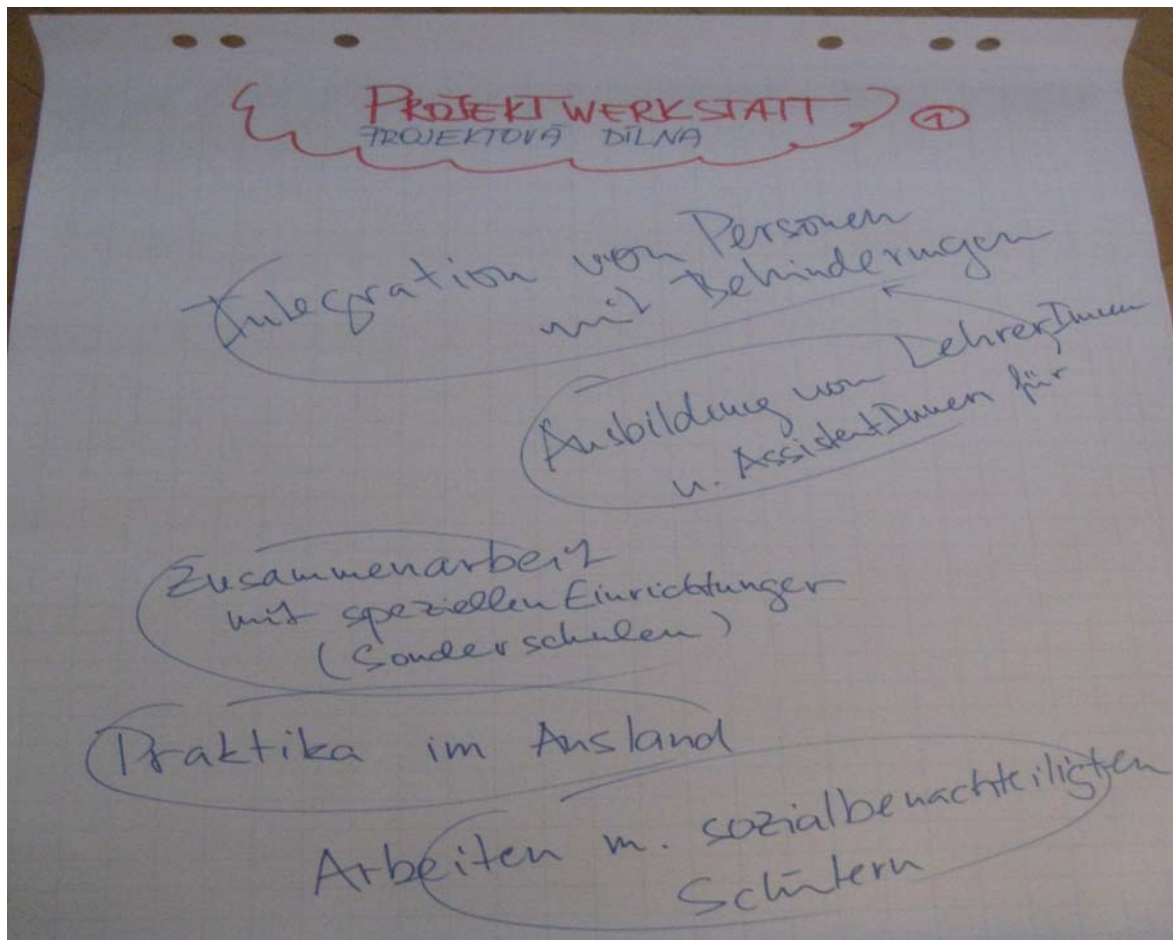 PROJEKTWERKSTATT ①
PROJEKTOVÁ DÍLNA
Integration von Personen
mit Behinderungen
Ausbildung von LehrerInnen
u. AssistentInnen für
Zusammenarbeit
mit speziellen Einrichtungen
(Sonderschulen)
Praktika im Ausland
Arbeiten m. sozialbenachteiligten
Schülern